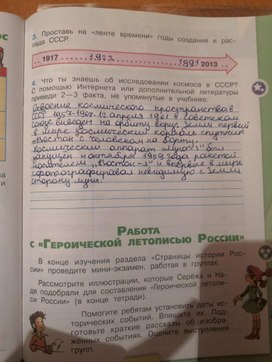 3. Проставь на «ленте времени» годы создания и рас-
пада СССР.
1917 1922 1991 2013
4. Что ты знаешь об исследовании космоса в СССР?
С помощью Интернета или дополнительной литературы
приведи 2—3 факта, не упомянутые в учебнике.
Освоение космического пространства в
СССР 1957-1967. 12 апреля 1961 в советском
союзе выведен на орбиту вокруг Земли первый
в мире космический корабль спутник
«Восток» с человеком на борту.
Космический аппарат "Луна-3" был
запущен 4 октября 1959 года ракетой
носителем „Восток-Л" и впервые в мире
сфотографировал невидимую с Земли
сторону луны.
РАБОТА
С «ГЕРОИЧЕСКОЙ ЛЕТОПИСЬЮ РОССИИ»
В конце изучения раздела «Страницы истории Рос-
сии» проведите мини-экзамен, работая в группах.
Рассмотрите иллюстрации, которые Серёжа и На-
дя подобрали для составления «Героической летопи-
си России» (в конце тетради).
Помогите ребятам установить даты ис-
торических событий. Впишите их. Подго-
товьте краткие рассказы об изобра-
жённых событиях. Оцените выступления
групп.